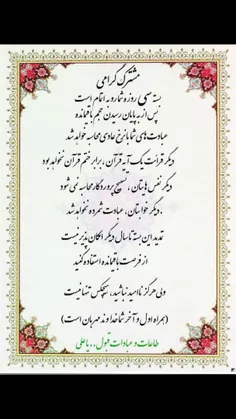 مشترک گرامی
بسته سی روزه شما رو به اتمام است
پس از به پایان رسیدن حجم باقیمانده
عبادت های شما با نرخ عادی محاسبه خواهد شد
دیگر قرائت یک آیه قرآن، برابر ختم قرآن نخواهد بود
دیگر نفس هایتان، تسبیح پروردگار محاسبه نمی شود
، دیگر خوابتان، عبادت شمرده نخواهد شد
تمدید این بسته تا سال دیگر امکان پذیر نیست
از فرصت باقیمانده استفاده کنید
ولی هرگز ناامید نباشید، هیچکس تنها نیست
(همراه اول و آخر شما خداوند مهربان است)
طاعات و عبادات قبول.. یا علی